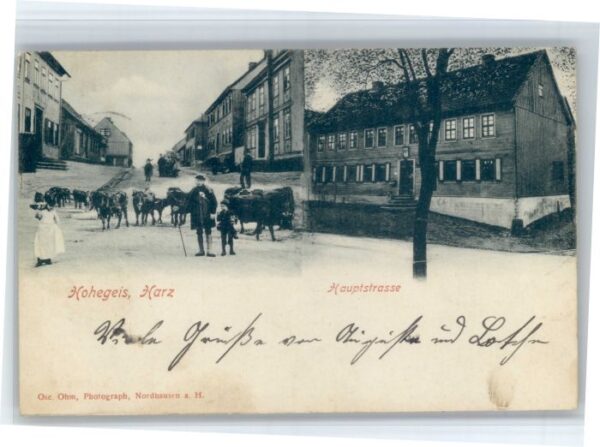 Hohegeis, Harz
Hauptstrasse
Viele Grüße von Auguste und
Osc. Ohm, Photograph, Nordhausen a. H.